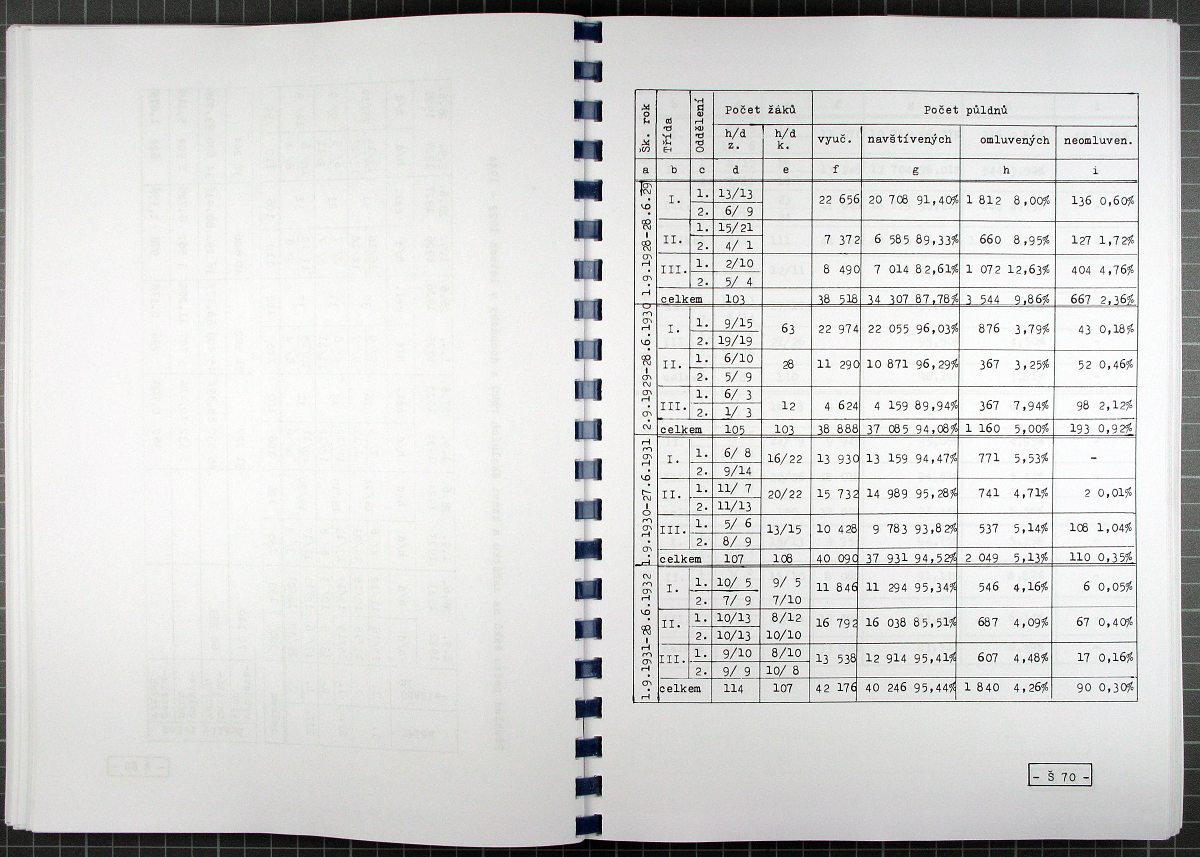 Šk. rok Třída Oddělení Počet žáků Počet půldnů
h/d z. h/d k. vyuč. navštívených omluvených neomluven.
a b c d e f g h i
1.9.1928-28.6.29
I. 1. 13/13 22 656 20 708 91,40% 1 812 8,00% 136 0,60%
2. 6/ 9
II. 1. 15/21 7 372 6 585 89,33% 660 8,95% 127 1,72%
2. 4/ 1
III. 1. 2/10 8 490 7 014 82,61% 1 072 12,63% 404 4,76%
2. 5/ 4
celkem 103 38 518 34 307 87,78% 3 544 9,86% 667 2,36%
2.9.1929-28.6.1930
I. 1. 9/15 63 22 974 22 055 96,03% 876 3,79% 43 0,18%
2. 19/19
II. 1. 6/10 28 11 290 10 871 96,29% 367 3,25% 52 0,46%
2. 5/ 9
III. 1. 6/ 3 12 4 624 4 159 89,94% 367 7,94% 98 2,12%
2. 1/ 3
celkem 105 103 38 888 37 085 94,08% 1 160 5,00% 193 0,92%
1.9.1930-27.6.1931
I. 1. 6/ 8 16/22 13 930 13 159 94,47% 771 5,53% -
2. 9/14
II. 1. 11/ 7 20/22 15 732 14 989 95,28% 741 4,71% 2 0,01%
2. 11/13
III. 1. 5/ 6 13/15 10 428 9 783 93,82% 537 5,14% 108 1,04%
2. 8/ 9
celkem 107 108 40 090 37 931 94,52% 2 049 5,13% 110 0,35%
1.9.1931-28.6.1932
I. 1. 10/ 5 9/ 5 11 846 11 294 95,34% 546 4,16% 6 0,05%
2. 7/ 9 7/10
II. 1. 10/13 8/12 16 792 16 038 85,51% 687 4,09% 67 0,40%
2. 10/13 10/10
III. 1. 9/10 8/10 13 538 12 914 95,41% 607 4,48% 17 0,16%
2. 9/ 9 10/ 8
celkem 114 107 42 176 40 246 95,44% 1 840 4,26% 90 0,30%
- Š 70 -